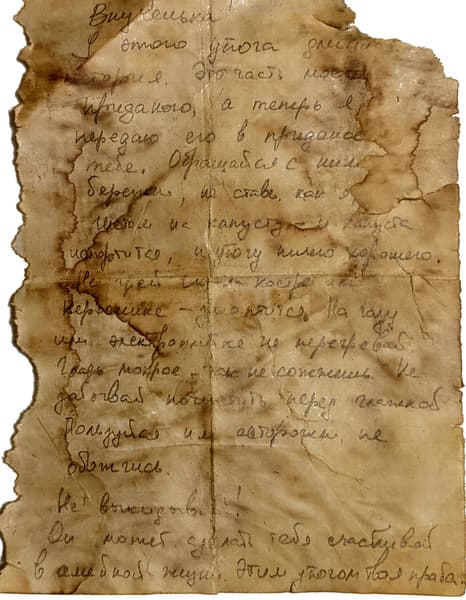 Внученька!
У этого утюга длинная
история. Это часть моего
приданого, а теперь я
передаю его в приданое
тебе. Обращайся с ним
бережно, не ставь, как я,
гнётом на капусту – и капуста
портится, и утюгу ничего хорошего.
Не грей на костре или
керосинке – закоптится. На газу
или электроплитке не перегревай.
Гладь мокрое – так не сожжёшь. Не
забывай почистить перед глажкой
Пользуйся им осторожно не
обожгись.
Не выкидывай!
Он может сделать тебя счастливой
в семейной жизни. Этим утюгом твоя праба